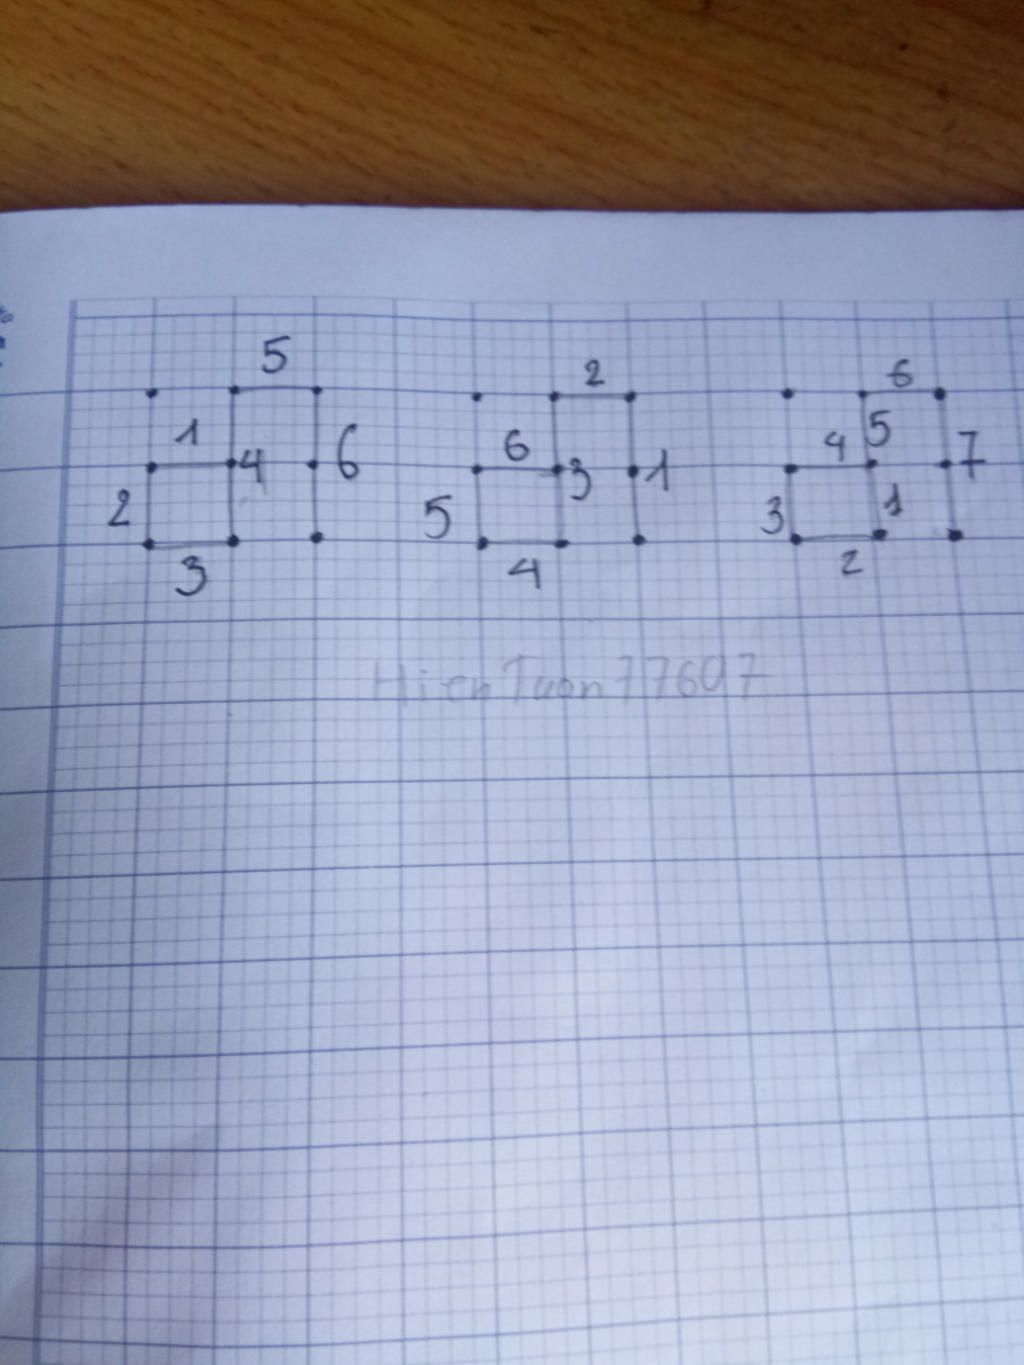 5 2 6
1 6 4 5
4 6 3 1 7
2 5 3 1
3 4 2
HienTuan77607